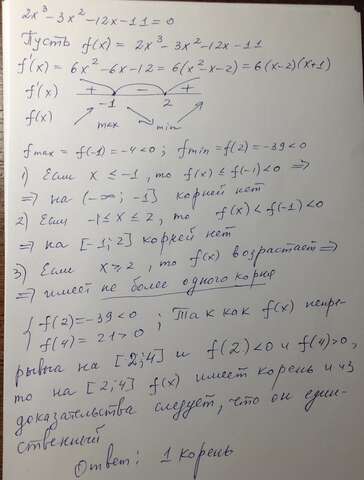 2x³-3x²-12x-11=0
Пусть f(x) = 2x³-3x²-12x-11
f'(x) = 6x²-6x-12=6(x²-x-2)=6(x-2)(x+1)
f'(x) + - +
f(x) -1 2
max min
fmax = f(-1)=-4<0; fmin=f(2)=-39<0
1) Если x≤-1, то f(x)≤f(-1)<0 ⇒
⇒ на (-∞;-1] корней нет
2) Если -1≤x≤2, то f(x)<f(-1)<0
⇒ на [-1;2] корней нет
3) Если x≥2, то f(x) возрастает⇒
⇒ имеет не более одного корня
{ f(2)=-39<0
f(4)=21>0 ; Так как f(x) непре-
рывна на [2;4] и f(2)<0 и f(4)>0,
то на [2;4] f(x) имеет корень и из
доказательства следует, что он един-
ственный
Ответ: 1 корень